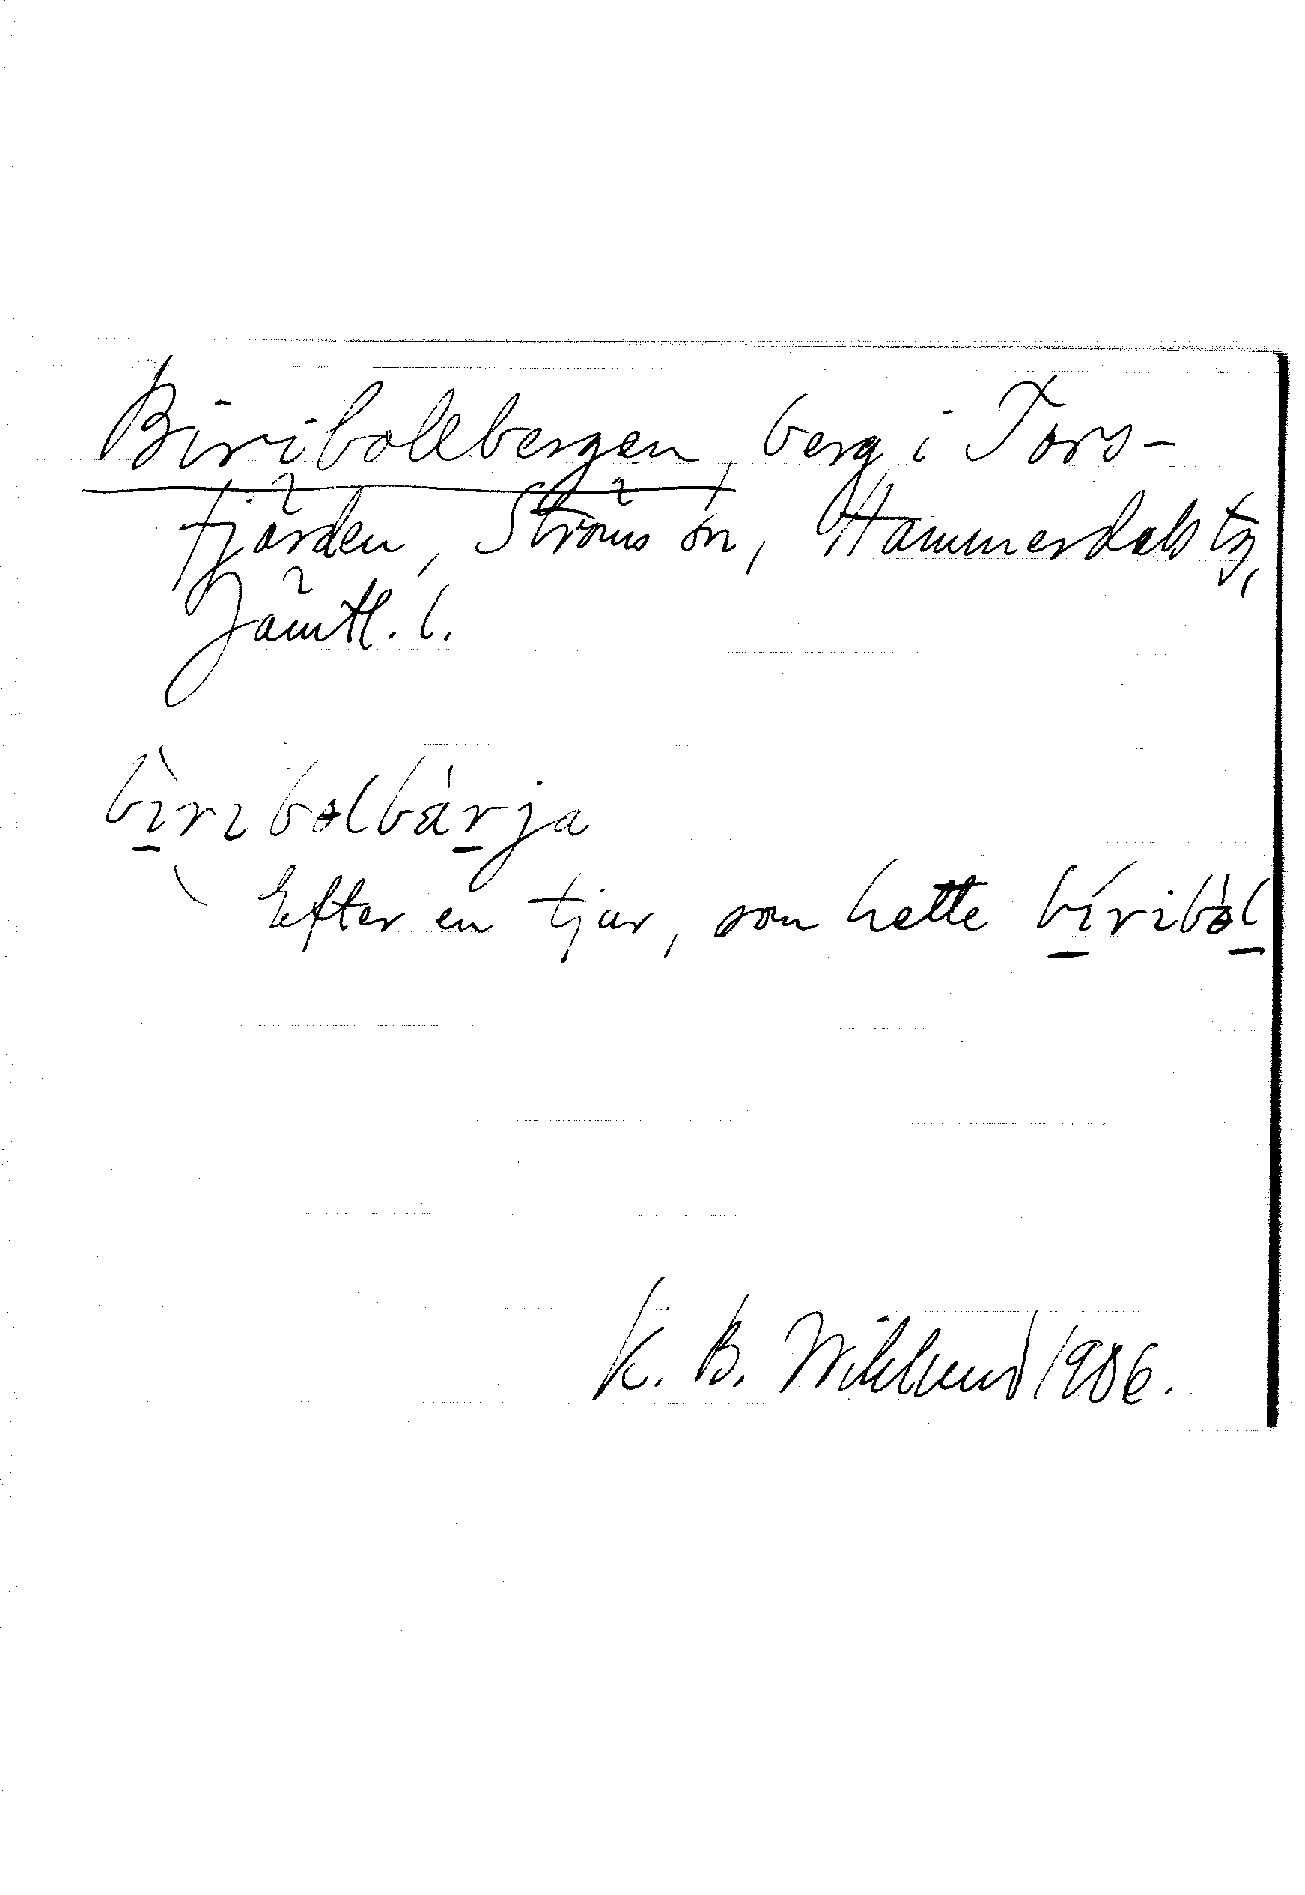 Biribollbergen, berg i Tors-
fjärden, Ströms sn, Hammerdals tg,
Jämtl. l.
bìribolbárja
Efter en tjur, som hette bíribòl
K. B. Wiklund 1906.